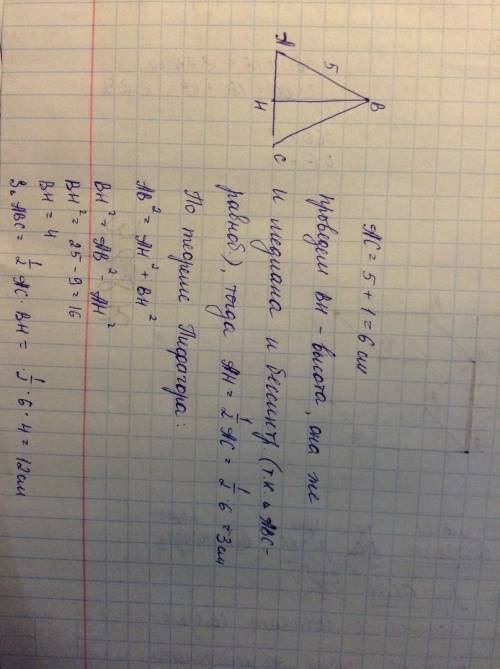 A
5
B
H
C
AC = 5 + 1 = 6 см
проведём BH - высота, она же
и медиана и биссектр. (т.к. △ ABC -
равноб), тогда AH = 1/2 AC = 1/2 · 6 = 3 см
По теореме Пифагора:
AB² = AH² + BH²
BH² = AB² AH²
BH² = 25 - 9 = 16
BH = 4
S△ABC = 1/2 AC · BH = 1/2 · 6 · 4 = 12 см